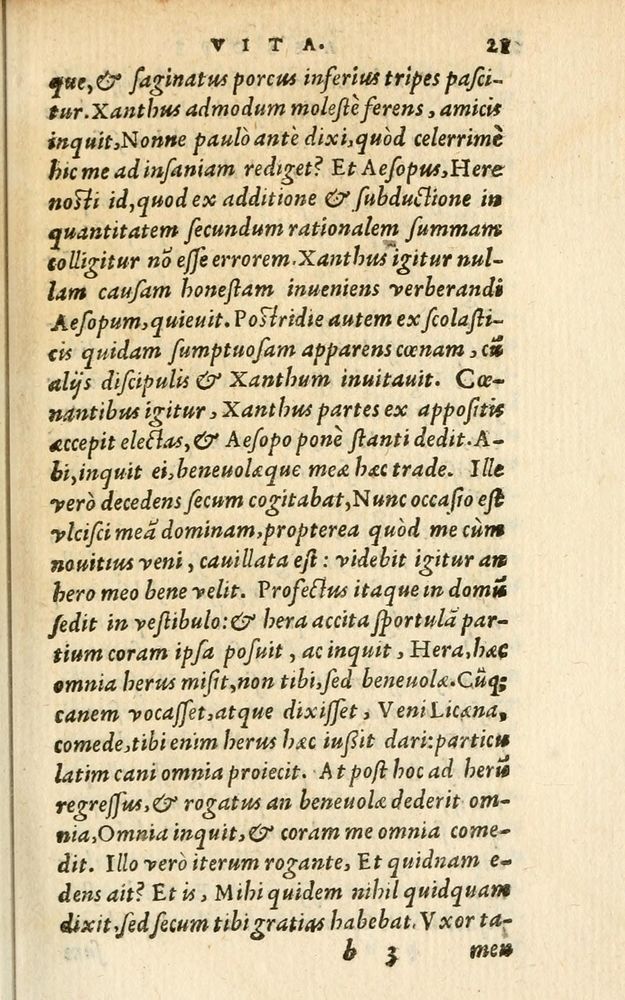 VITA. 21
que, & saginatus porcus inferius tripes pasci-
tur. Xanthus admodum molestè ferens, amicis
inquit, Nonne paulò antè dixi, quòd celerrimè
hic me ad insaniam rediget? Et Aesopus, Here
nosti id, quod ex additione & subductione in
quantitatem secundum rationalem summam
colligitur nõ esse errorem. Xanthus igitur nul-
lam causam honestam inueniens verberandi
Aesopum, quieuit. Postridie autem ex scolasti-
cis quidam sumptuosam apparens cœnam, cũ
alijs discipulis & Xanthum inuitauit. Cœ-
nantibus igitur, Xanthus partes ex appositis
accepit electas, & Aesopo ponè stanti dedit. A-
bi, inquit ei, beneuolæque meæ hæc trade. Ille
verò decedens secum cogitabat, Nunc occasio est
vlcisci meã dominam, propterea quòd me cùm
nouitius veni, cauillata est: videbit igitur an
hero meo bene velit. Profectus itaque in domũ
sedit in vestibulo: & hera accita sportulã par-
tium coram ipsa posuit, ac inquit, Hera, hæc
omnia herus misit, non tibi, sed beneuolæ. Cũq;
canem vocasset, atque dixisset, Veni Licæna,
comede, tibi enim herus hæc iussit dari: particu
latim cani omnia proiecit. At post hoc ad herũ
regressus, & rogatus an beneuolæ dederit om-
nia, Omnia inquit, & coram me omnia come-
dit. Illo verò iterum rogante, Et quidnam e-
dens ait? Et is, Mihi quidem nihil quidquam
dixit, sed secum tibi gratias habebat. Vxor ta-
b 3 men